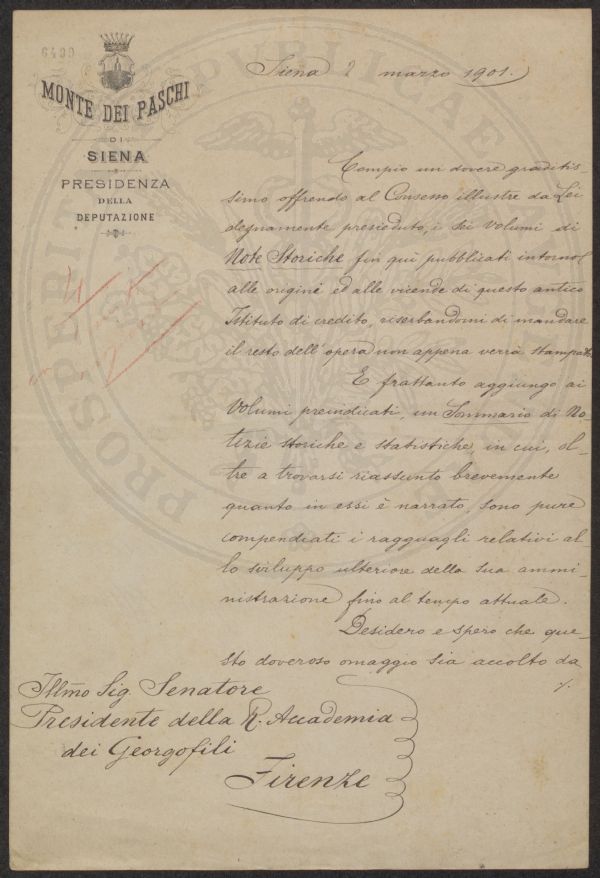 6499
MONTE DEI PASCHI
DI
SIENA
PRESIDENZA
DELLA
DEPUTAZIONE
Siena 2 marzo 1901.
Compio un dovere graditis-
simo offrendo al Consesso illustre da Lei
degnamente presieduto, i sei Volumi di
Note Storiche fin quì pubblicati intorno
alle origini ed alle vicende di questo antico
Istituto di credito, riserbandomi di mandare
il resto dell'opera non appena verrà stampato.
E frattanto aggiungo ai
Volumi preindicati, un Sommario di No-
tizie storiche e statistiche, in cui, ol-
tre a trovarsi riassunto brevemente
quanto in essi è narrato, sono pure
compendiati i ragguagli relativi al-
lo sviluppo ulteriore della sua ammi-
nistrazione fino al tempo attuale.
Desidero e spero che que-
sto doveroso omaggio sia accolto da
./.
Illmo Sig. Senatore
Presidente della R. Accademia
dei Georgofili
Firenze
PROSPERIT PUBLICAE